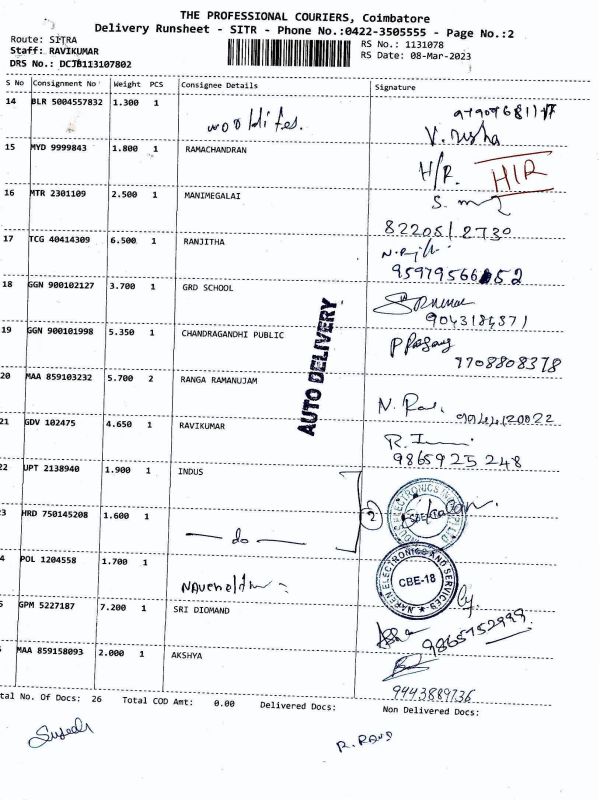 THE PROFESSIONAL COURIERS, Coimbatore
Delivery Runsheet - SITR - Phone No.:0422-3505555 - Page No.:2
Route: SITRA
Staff: RAVIKUMAR
DRS No.: DCJB113107802
RS No.: 1131078
RS Date: 08-Mar-2023
S No Consignment No Weight PCS Consignee Details Signature
14 BLR 5004557832 1.300 1
15 MYD 9999843 1.800 1 RAMACHANDRAN
H/R. H/R
16 MTR 2301109 2.500 1 MANIMEGALAI
82205/2730
17 TCG 40414309 6.500 1 RANJITHA
18 GGN 900102127 3.700 1 GRD SCHOOL
9043184371
19 GGN 900101998 5.350 1 CHANDRAGANDHI PUBLIC
7708808378
20 MAA 859103232 5.700 2 RANGA RAMANUJAM
AUTO DELIVERY
21 GDV 102475 4.650 1 RAVIKUMAR
9865925248
22 UPT 2138940 1.900 1 INDUS
2
3 HRD 750145208 1.600 1
— do —
4 POL 1204558 1.700 1
NAVEEN ELECTRONICS AND SERVICES
CBE-18
5 GPM 5227187 7.200 1 SRI DIOMAND
9865752999
MAA 859158093 2.000 1 AKSHYA
9443889736
tal No. Of Docs: 26 Total COD Amt: 0.00 Delivered Docs: Non Delivered Docs: